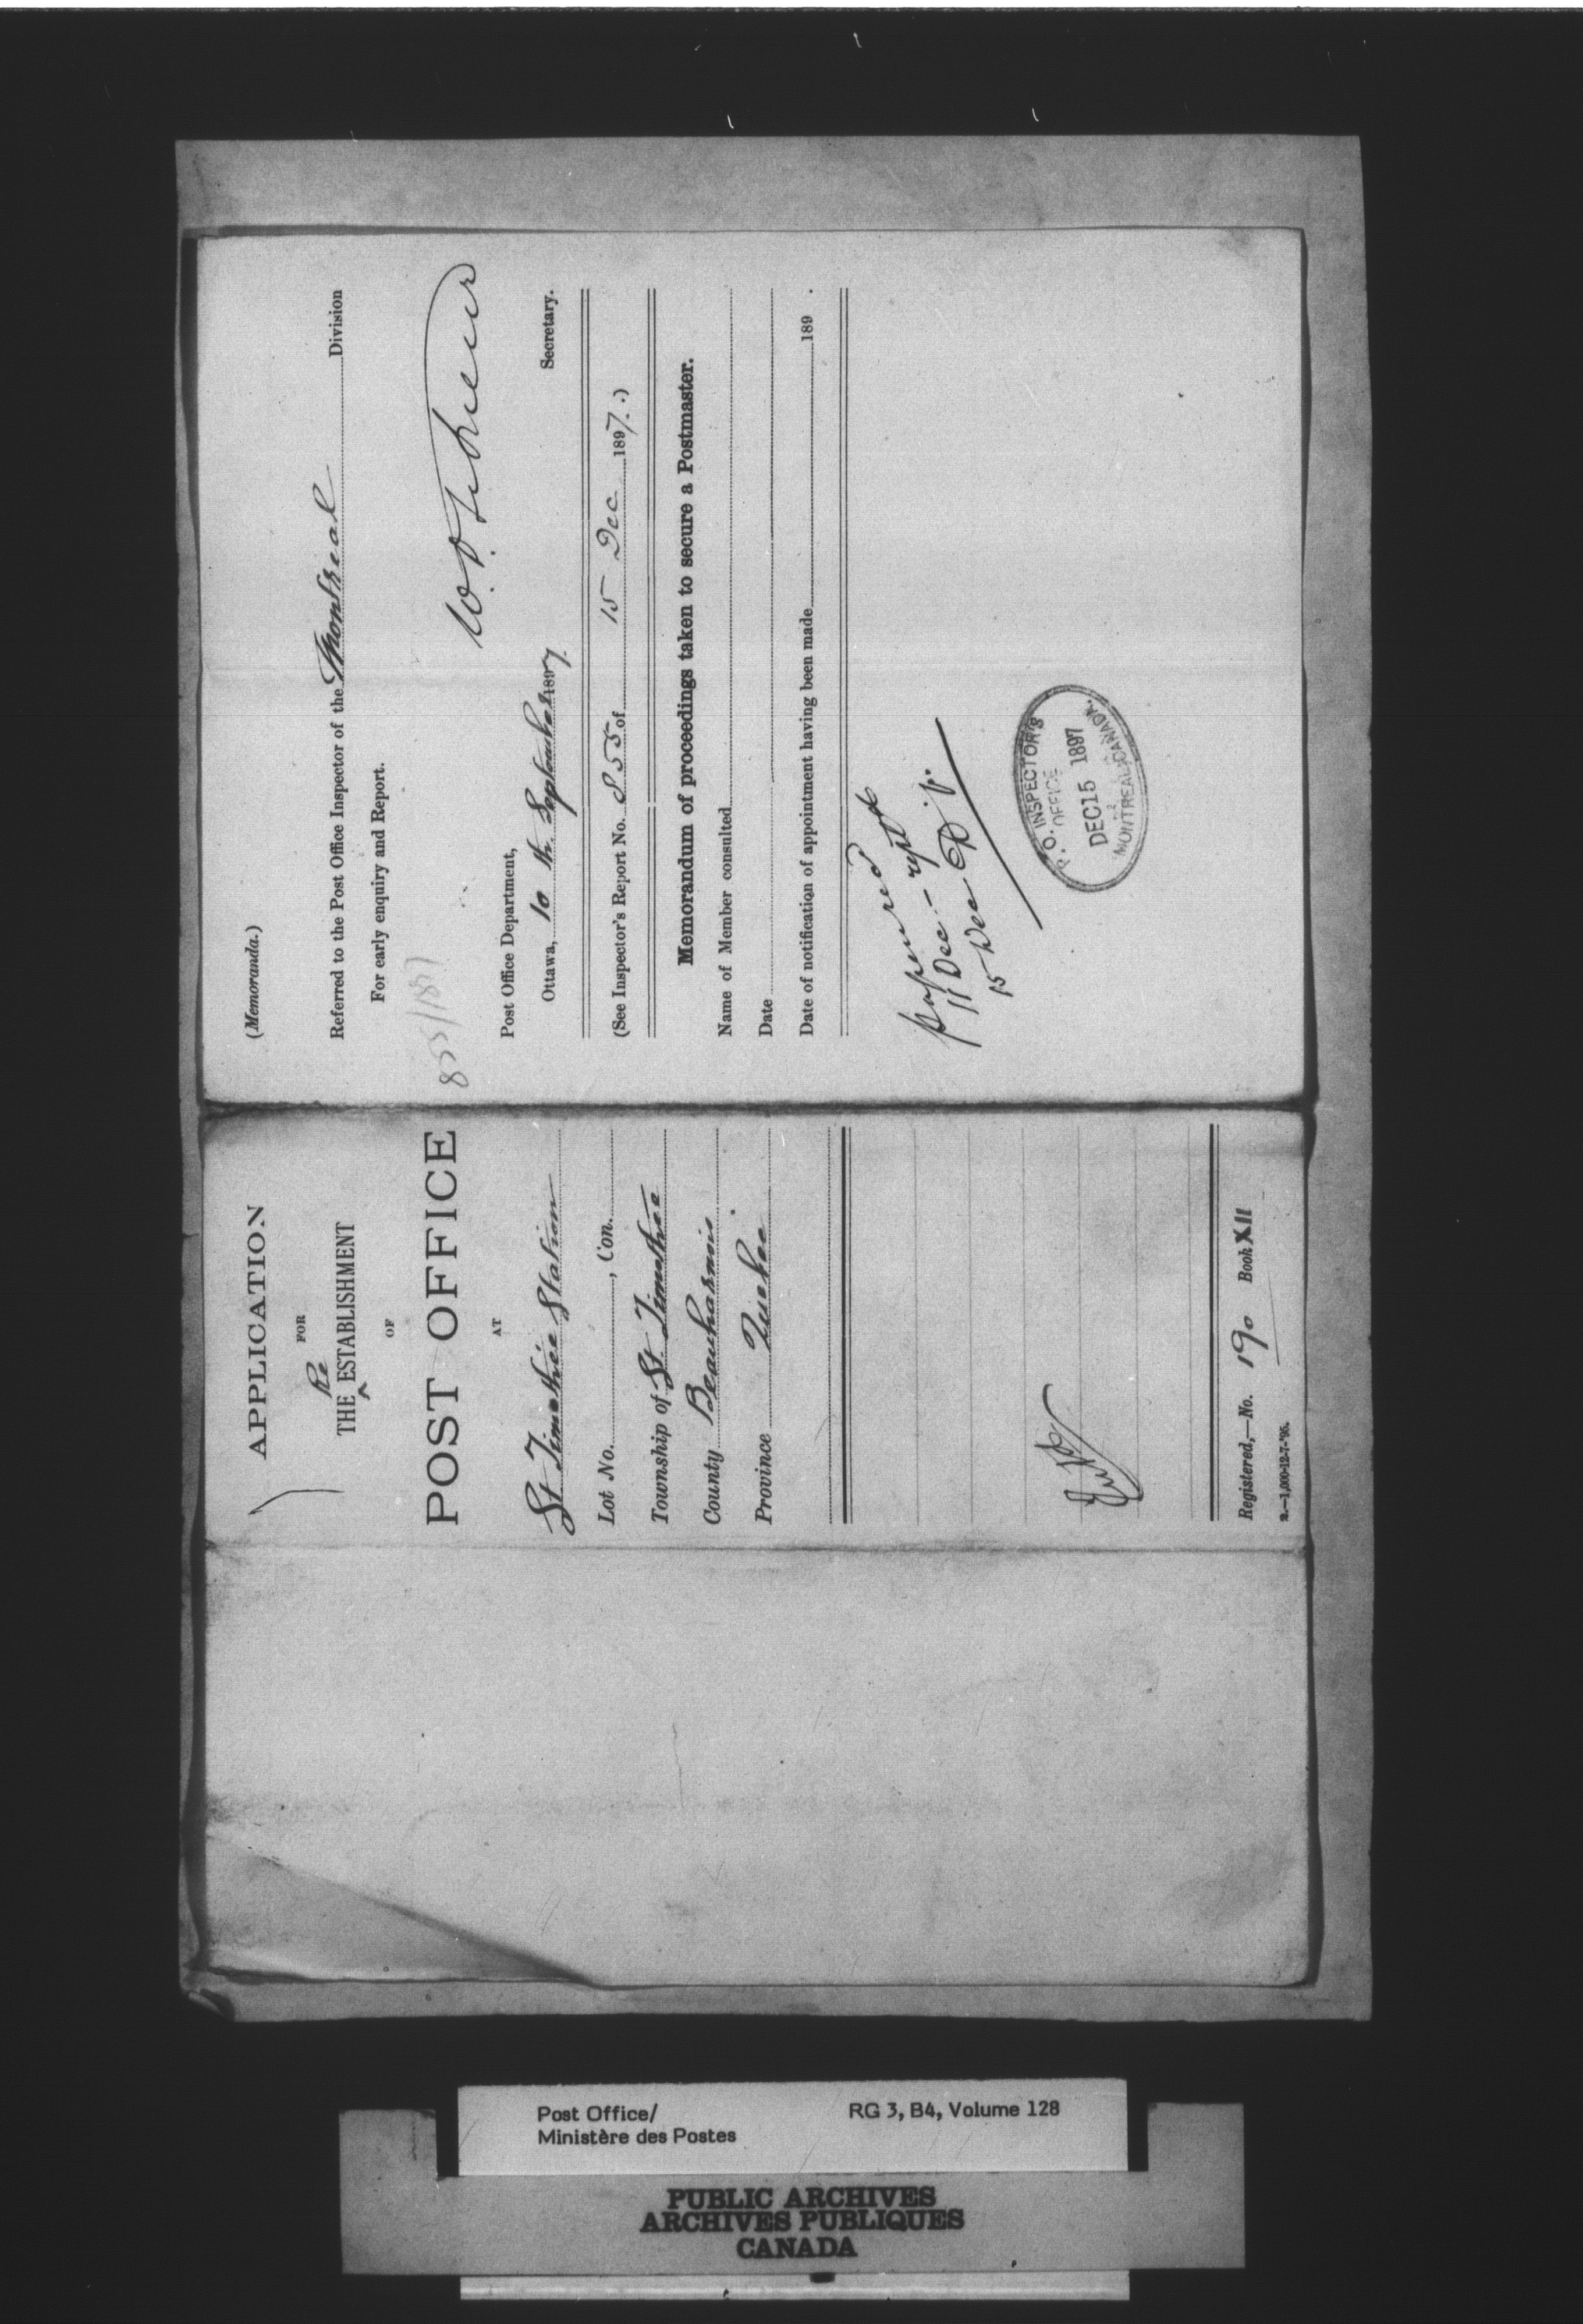 (Memoranda.)
Referred to the Post Office Inspector of the Montreal Division
For early enquiry and Report.
855/1897
Secretary.
Post Office Department,
Ottawa, 10th September 1897
(See Inspector's Report No. 855 of 15 Dec 1897.)
Memorandum of proceedings taken to secure a Postmaster.
Name of Member consulted
Date
Date of notification of appointment having been made 189 .
papers
11 Dec -
15 Dec
P. O. INSPECTOR'S
OFFICE
DEC 15 1897
MONTREAL, CANADA
APPLICATION
FOR
THE Re ESTABLISHMENT
OF
POST OFFICE
AT
St Timothée Station
Lot No. , Con.
Township of St. Timothée
County Beauharnois
Province Quebec
Registered,—No. 190 Book XII
2.—1,000-12-7-'95.
Post Office/
Ministère des Postes
RG 3, B4, Volume 128
PUBLIC ARCHIVES
ARCHIVES PUBLIQUES
CANADA